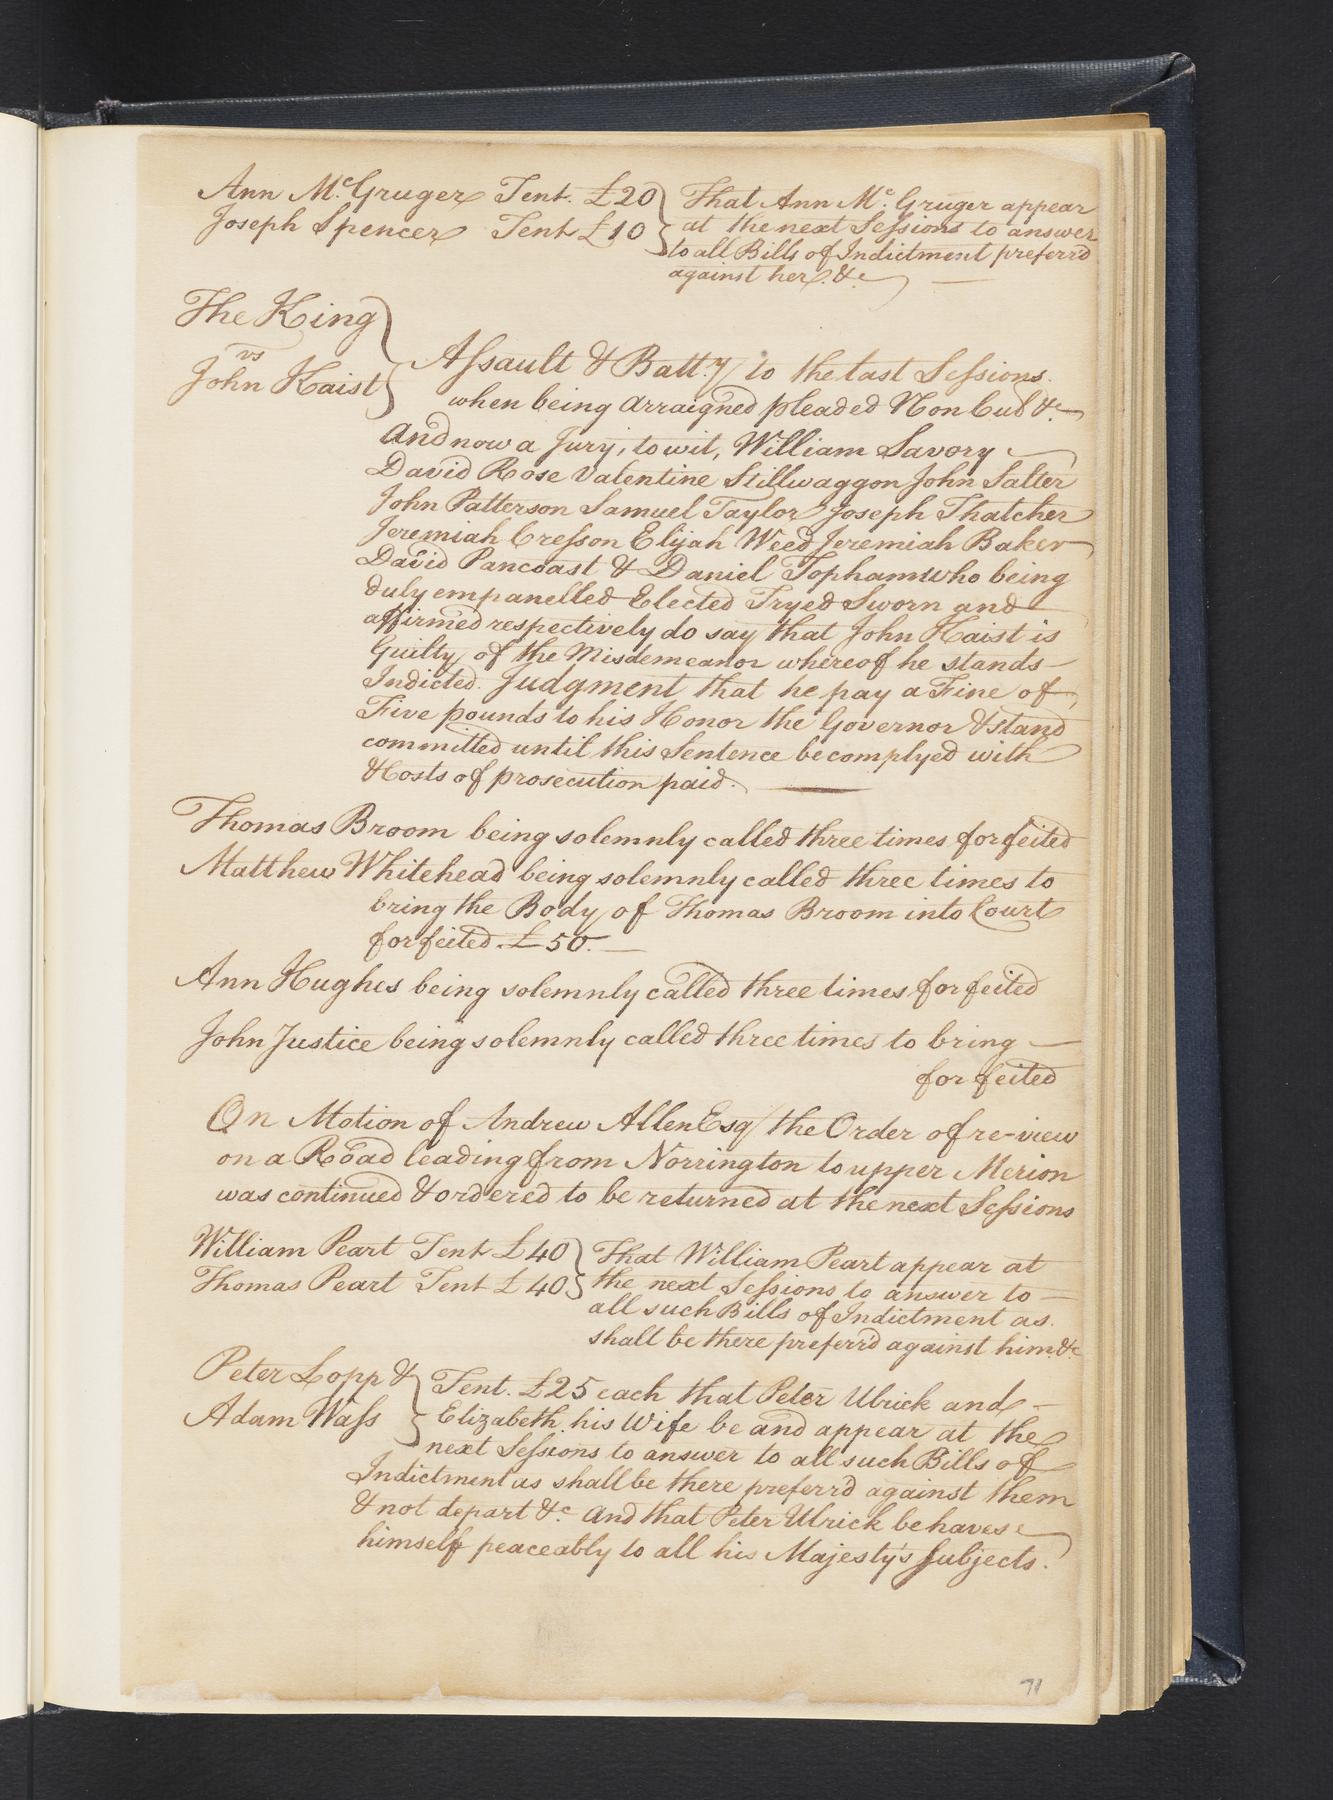 Ann Mc. Gruger Tent. £20
Joseph Spencer Tent £10
That Ann Mc. Gruger appear
at the next Sessions to answer
to all Bills of Indictment preferr'd
against her. &c
The King
vs
John Haist
Assault & Batt.y to the last Sessions.
when being arraigned pleaded Non Cul &c.
And now a Jury, to wit, William Savory
David Rose Valentine Stillwaggon John Salter
John Patterson Samuel Taylor Joseph Thatcher
Jeremiah Cresson Elijah Weed Jeremiah Baker
David Pancoast & Daniel Topham who being
duly empanelled Elected Tryed Sworn and
affirmed respectively do say that John Haist is
Guilty of the Misdemeanor whereof he stands
Indicted. Judgment that he pay a Fine of
Five pounds to his Honor the Governor & stand
committed until this Sentence be complyed with
& Costs of prosecution paid.
Thomas Broom being solemnly called three times forfeited
Matthew Whitehead being solemnly called three times to
bring the Body of Thomas Broom into Court
forfeited. £50.
Ann Hughes being solemnly called three times forfeited
John Justice being solemnly called three times to bring
forfeited
On Motion of Andrew Allen Esq the Order of re-view
on a Road leading from Norrington to upper Merion
was continued & ordered to be returned at the next Sessions
William Peart Tent £40
Thomas Peart Tent £40
That William Peart appear at
the next Sessions to answer to
all such Bills of Indictment as.
shall be there preferr'd against him. &c
Peter Lopp &
Adam Wass
Tent. £25 each that Peter Ulrick and
Elizabeth his Wife be and appear at the
next Sessions to answer to all such Bills of
Indictment as shall be there preferr'd against them
& not depart &c. and that Peter Ulrick behaves
himself peaceably to all his Majesty's Subjects.
71